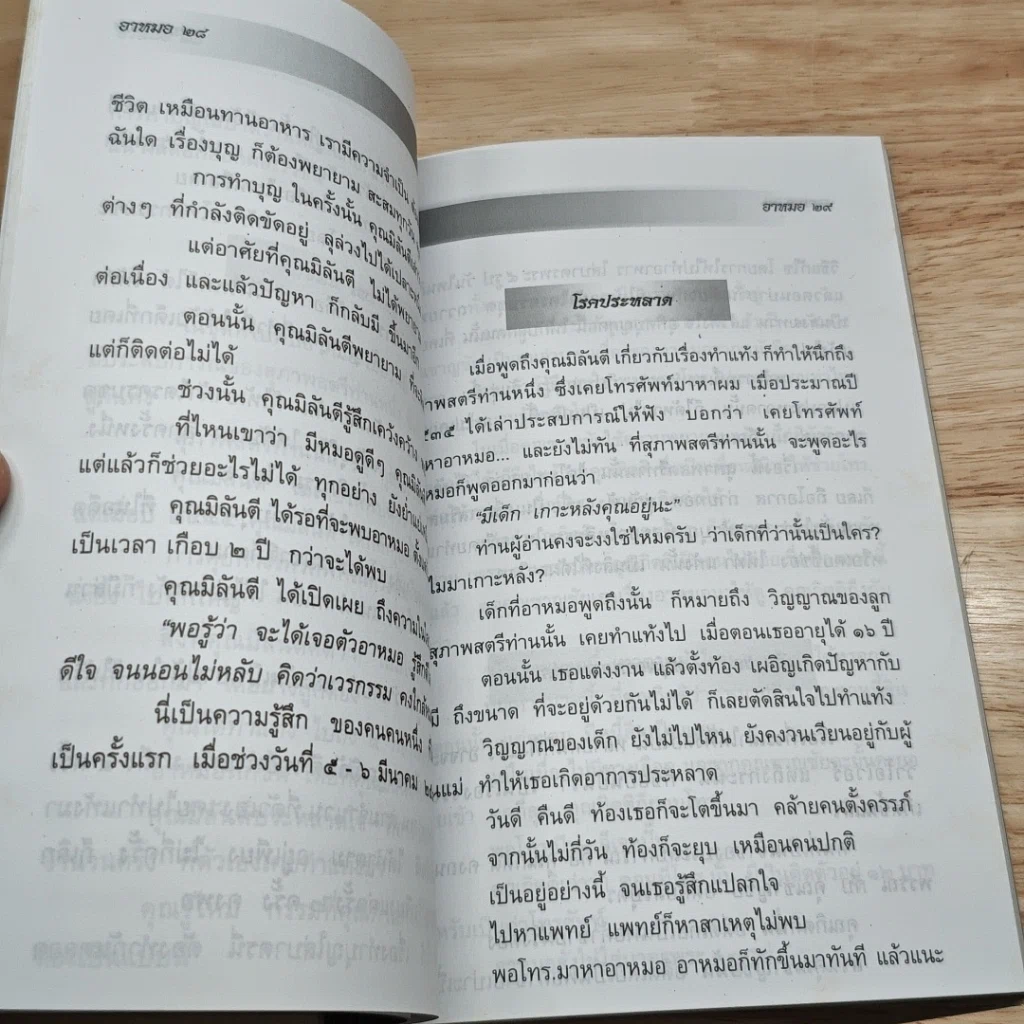 อาหมอ ๒๘
ชีวิต เหมือนทานอาหาร เรามีความจำเป็น
ฉันใด เรื่องบุญ ก็ต้องพยายาม สะสมทุกวัน
การทำบุญ ในครั้งนั้น คุณมิลันตี
ต่างๆ ที่กำลังติดขัดอยู่ ลุล่วงไปได้
แต่อาศัยที่คุณมิลันตี ไม่ได้
ต่อเนื่อง และแล้วปัญหา ก็กลับมี ขึ้นมา
ตอนนั้น คุณมิลันตีพยายาม
แต่ก็ติดต่อไม่ได้
ช่วงนั้น คุณมิลันตีรู้สึกเคว้งคว้าง
ที่ไหนเขาว่า มีหมอดูดีๆ
แต่แล้วก็ช่วยอะไรไม่ได้ ทุกอย่าง ยังย่ำแย่
คุณมิลันตี ได้รอที่จะพบอาหมอ
เป็นเวลา เกือบ ๒ ปี กว่าจะได้พบ
คุณมิลันตี ได้เปิดเผย ถึงความ
“พอรู้ว่า จะได้เจอตัวอาหมอ รู้สึก
ดีใจ จนนอนไม่หลับ คิดว่าเวรกรรม คงใกล้
นี่เป็นความรู้สึก ของคนคนหนึ่ง ที่
เป็นครั้งแรก เมื่อช่วงวันที่ ๕ - ๖ มีนาคม
อาหมอ ๒๙
โรคประหลาด
เมื่อพูดถึงคุณมิลันตี เกี่ยวกับเรื่องทำแท้ง ก็ทำให้นึกถึง
าพสตรีท่านหนึ่ง ซึ่งเคยโทรศัพท์มาหาผม เมื่อประมาณปี
๓๕ ได้เล่าประสบการณ์ให้ฟัง บอกว่า เคยโทรศัพท์
หาอาหมอ... และยังไม่ทัน ที่สุภาพสตรีท่านนั้น จะพูดอะไร
หมอก็พูดออกมาก่อนว่า
“มีเด็ก เกาะหลังคุณอยู่นะ”
ท่านผู้อ่านคงจะงงใช่ไหมครับ ว่าเด็กที่ว่านั้นเป็นใคร?
ไมมาเกาะหลัง?
เด็กที่อาหมอพูดถึงนั้น ก็หมายถึง วิญญาณของลูก
สุภาพสตรีท่านนั้น เคยทำแท้งไป เมื่อตอนเธออายุได้ ๑๖ ปี
ตอนนั้น เธอแต่งงาน แล้วตั้งท้อง เผอิญเกิดปัญหากับ
มี ถึงขนาด ที่จะอยู่ด้วยกันไม่ได้ ก็เลยตัดสินใจไปทำแท้ง
วิญญาณของเด็ก ยังไม่ไปไหน ยังคงวนเวียนอยู่กับผู้
นแม่ ทำให้เธอเกิดอาการประหลาด
วันดี คืนดี ท้องเธอก็จะโตขึ้นมา คล้ายคนตั้งครรภ์
จากนั้นไม่กี่วัน ท้องก็จะยุบ เหมือนคนปกติ
เป็นอยู่อย่างนี้ จนเธอรู้สึกแปลกใจ
ไปหาแพทย์ แพทย์ก็หาสาเหตุไม่พบ
พอโทร.มาหาอาหมอ อาหมอก็ทักขึ้นมาทันที แล้วแนะ